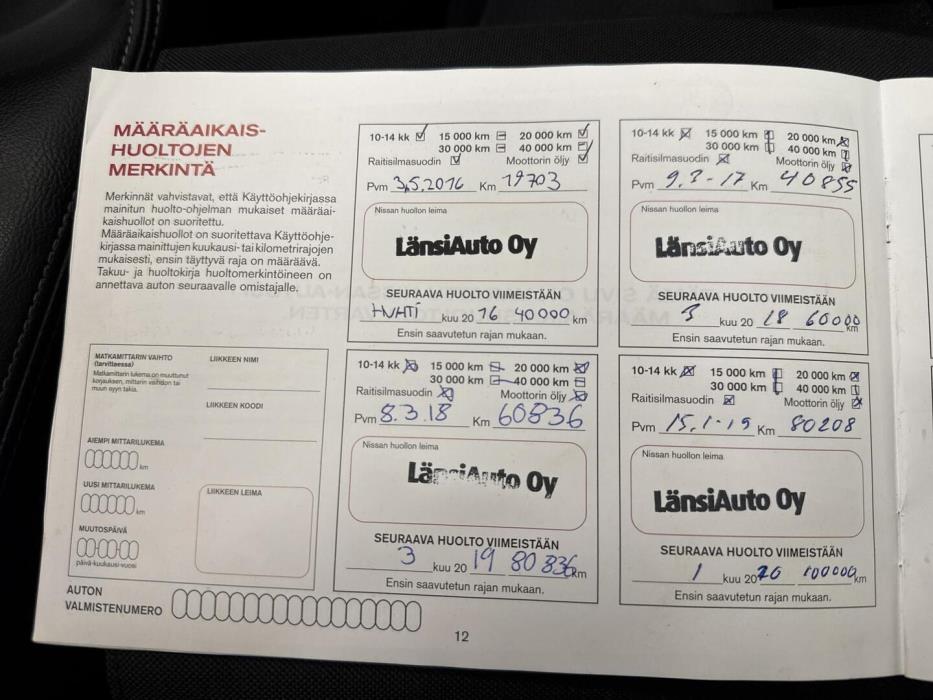 MÄÄRÄAIKAIS-
HUOLTOJEN
MERKINTÄ
Merkinnät vahvistavat, että Käyttöohjekirjassa
mainitun huolto-ohjelman mukaiset määräai-
kaishuollot on suoritettu.
Määräaikaishuollot on suoritettava Käyttöohje-
kirjassa mainittujen kuukausi- tai kilometrirajojen
mukaisesti, ensin täyttyvä raja on määräävä.
Takuu- ja huoltokirja huoltomerkintöineen on
annettava auton seuraavalle omistajalle.
10-14 kk 15 000 km 20 000 km
30 000 km 40 000 km
Raitisilmasuodin Moottorin öljy
Pvm 3.5.2016 Km 19703
Nissan huollon leima
LänsiAuto Oy
SEURAAVA HUOLTO VIIMEISTÄÄN
HUHTI kuu 20 16 40000 km
Ensin saavutetun rajan mukaan.
10-14 kk 15 000 km 20 000 km
30 000 km 40 000 km
Raitisilmasuodin Moottorin öljy
Pvm 9.3-17 Km 40855
Nissan huollon leima
LänsiAuto Oy
SEURAAVA HUOLTO VIIMEISTÄÄN
3 kuu 20 18 60000 km
Ensin saavutetun rajan mukaan.
MATKAMITTARIN VAIHTO
(tarvittaessa)
Matkamittarin lukema on muuttunut
korjauksen, mittarin vaihdon tai
muun syyn takia.
LIIKKEEN NIMI
LIIKKEEN KOODI
AIEMPI MITTARILUKEMA
km
UUSI MITTARILUKEMA
km
MUUTOSPÄIVÄ
päivä-kuukausi-vuosi
LIIKKEEN LEIMA
10-14 kk 15 000 km 20 000 km
30 000 km 40 000 km
Raitisilmasuodin Moottorin öljy
Pvm 8.3.18 Km 60836
Nissan huollon leima
LänsiAuto Oy
SEURAAVA HUOLTO VIIMEISTÄÄN
3 kuu 20 19 80836 km
Ensin saavutetun rajan mukaan.
10-14 kk 15 000 km 20 000 km
30 000 km 40 000 km
Raitisilmasuodin Moottorin öljy
Pvm 15.1-19 Km 80208
Nissan huollon leima
LänsiAuto Oy
SEURAAVA HUOLTO VIIMEISTÄÄN
1 kuu 20 20 100000 km
Ensin saavutetun rajan mukaan.
AUTON
VALMISTENUMERO
12